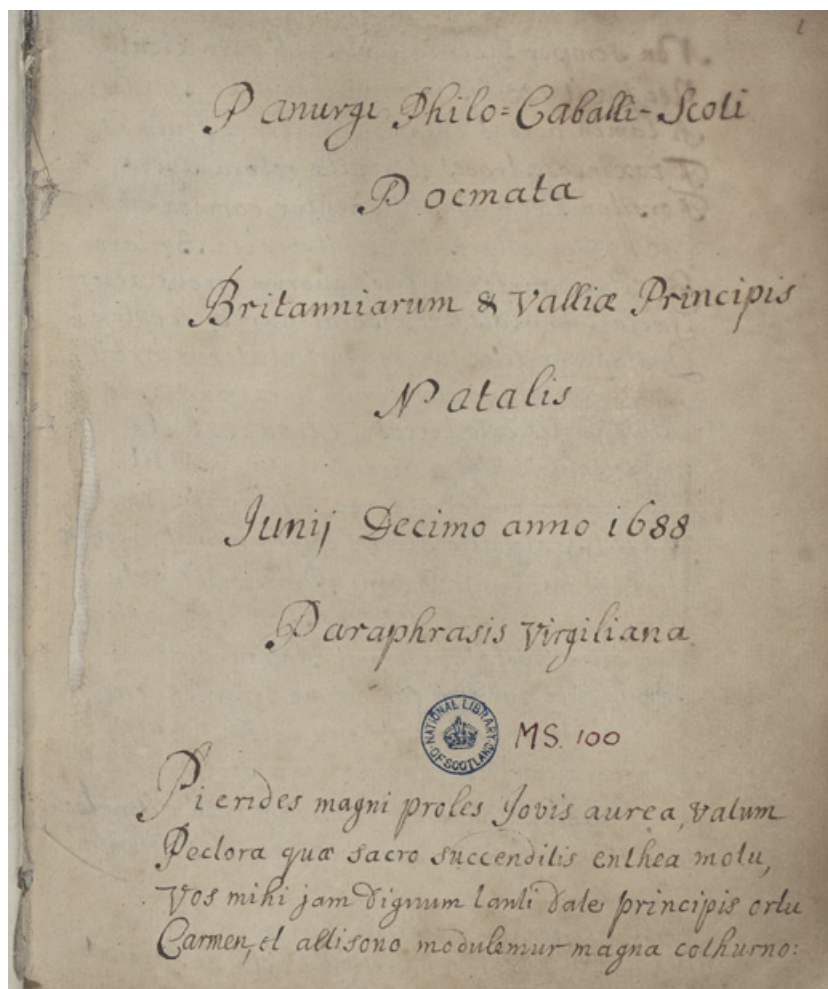 1
Panurgi Philo=Caballi-Scoti
Poemata
Britanniarum & Valliæ Principis
Natalis
Junij Decimo anno 1688
Paraphrasis Virgiliana
NATIONAL LIBRARY OF SCOTLAND
MS. 100
Pierides magni proles Jovis aurea, vatum
Pectora quæ sacro succenditis enthea motu,
Vos mihi jam dignum tanti date principis ortu
Carmen, et altisono modulemur magna cothurno: